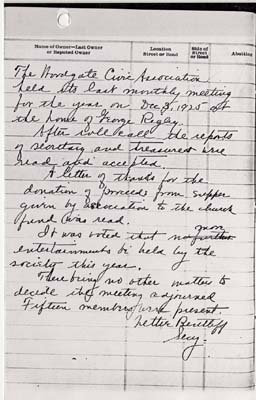 Name of Owner—Last Owner
or Reputed Owner
Location
Street or Road
Side of
Street
or Road
Abutting
The Woodgate Civic Association
held its last monthly meeting
for the year on Dec 3, 1925 at
the home of George Rigby.
After roll call the reports
of secretary and treasurer were
read and accepted.
A letter of thanks for the
donation of proceeds from supper
given by association to the church
fund was read.
It was voted that no more
entertainments be held by the
society this year.
There being no other matter to
decide the meeting adjourned
Fifteen members were present.
Secy.